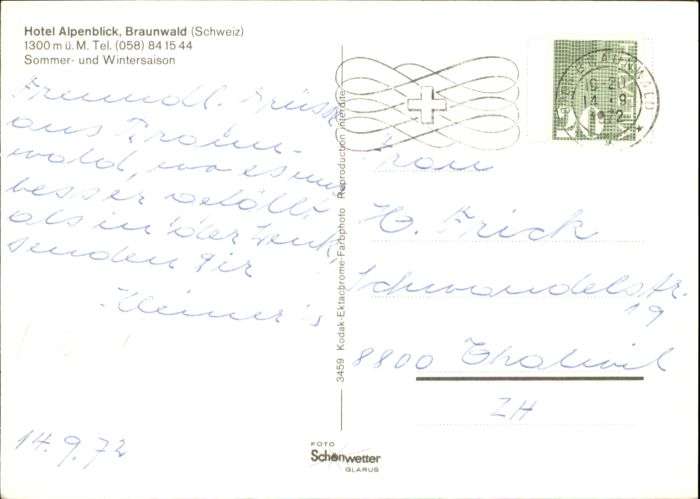 Hotel Alpenblick, Braunwald (Schweiz)
1300 m ü. M. Tel. (058) 84 15 44
Sommer- und Wintersaison
Freundl. Grüsse
aus Braun-
wald, wo es uns
besser gefällt
als in der Lenk,
senden Dir
Heiner's
14.9.72
3459 Kodak-Ektachrome-Farbphoto Reproduction interdite
FOTO
Schönwetter
GLARUS
14.-9.
1972
HELVETIA
Frau
H. Frick
Schwandelstr.
19
8800 Thalwil
ZH